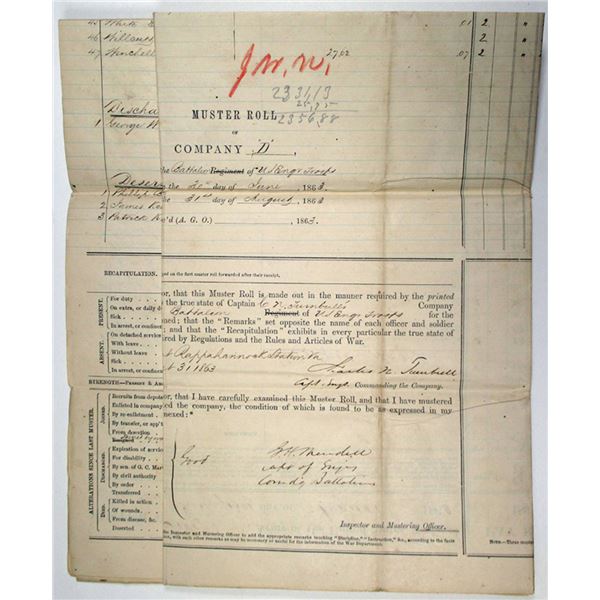 45 White
46
47 Winchell
01 2
2
07 2
J.W.N.
2702
2331,13
25,75
2356,88
MUSTER ROLL
OF
COMPANY "D",
Discha
1 George W
the Battalion Regiment of US Engr Troops
the 30th day of June 1863
the 31st day of August, 1863
'd (A. G. O.) , 1863.
Deser
1 Phillip
2 James
3 Patrick
RECAPITULATION.
ged on the first master roll forwarded after their receipt.
or, that this Muster Roll is made out in the manner required by the printed
the true state of Captain C. N. Turnbull's Company
Battalion Regiment of US Engr Troops for the
ned; that the "Remarks" set opposite the name of each officer and soldier
, and that the "Recapitulation" exhibits in every particular the true state of
ired by Regulations and the Rules and Articles of War.
Rappahannock Station Va
31 1863
Charles N Turnbull
Capt. Engrs. Commanding the Company.
or, that I have carefully examined this Muster Roll, and that I have mustered
the company, the condition of which is found to be as expressed in my
nexed:"
Good
G H Mendell
Capt of Engrs
Comdg Battalion
Inspector and Mustering Officer.
he Inspector and Mustering Officer to add the appropriate remarks touching "Discipline," "Instruction," &c., according to the facts
with such other remarks as may be necessary or useful for the information of the War Department.
PRESENT.
For duty
On extra, or daily d
Sick
In arrest, or confine
ABSENT.
On detached service
With leave
Without leave
Sick
In arrest, or confine
STRENGTH—PRESENT & ABS
ALTERATIONS SINCE LAST MUSTER.
JOINED.
Recruits from depots
Enlisted in company
By re-enlistment
By transfer, or app't
From desertion
Resigned
DISCHARGED.
Expiration of service
For disability
By sen. of G. C. Mar
By civil authority
By order
Transferred
DIED.
Killed in action
Of wounds
From disease, &c.
Deserted
NOTE.—Three muster